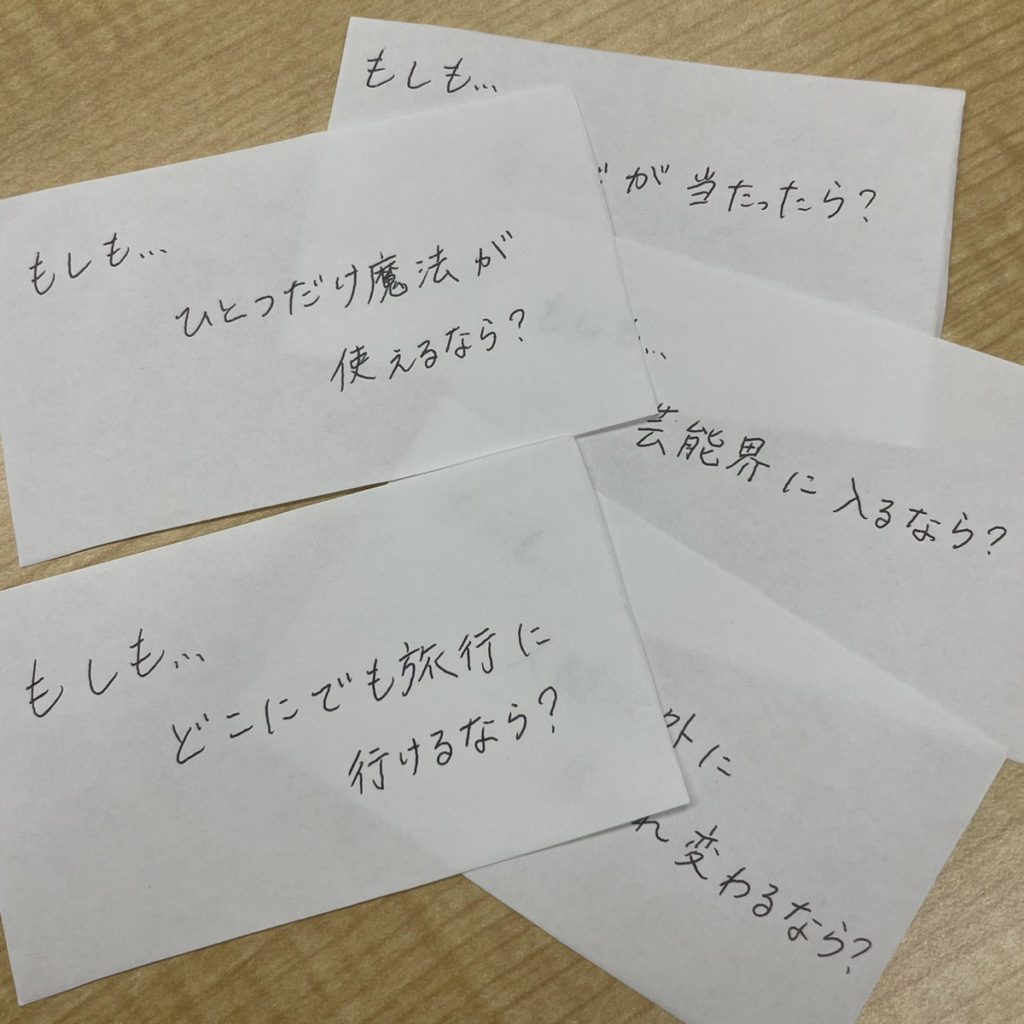 もしも...
が当たったら?
もしも...
ひとつだけ魔法が
使えるなら?
...
芸能界に入るなら?
もしも...
どこにでも旅行に
行けるなら?
外に
れ変わるなら?